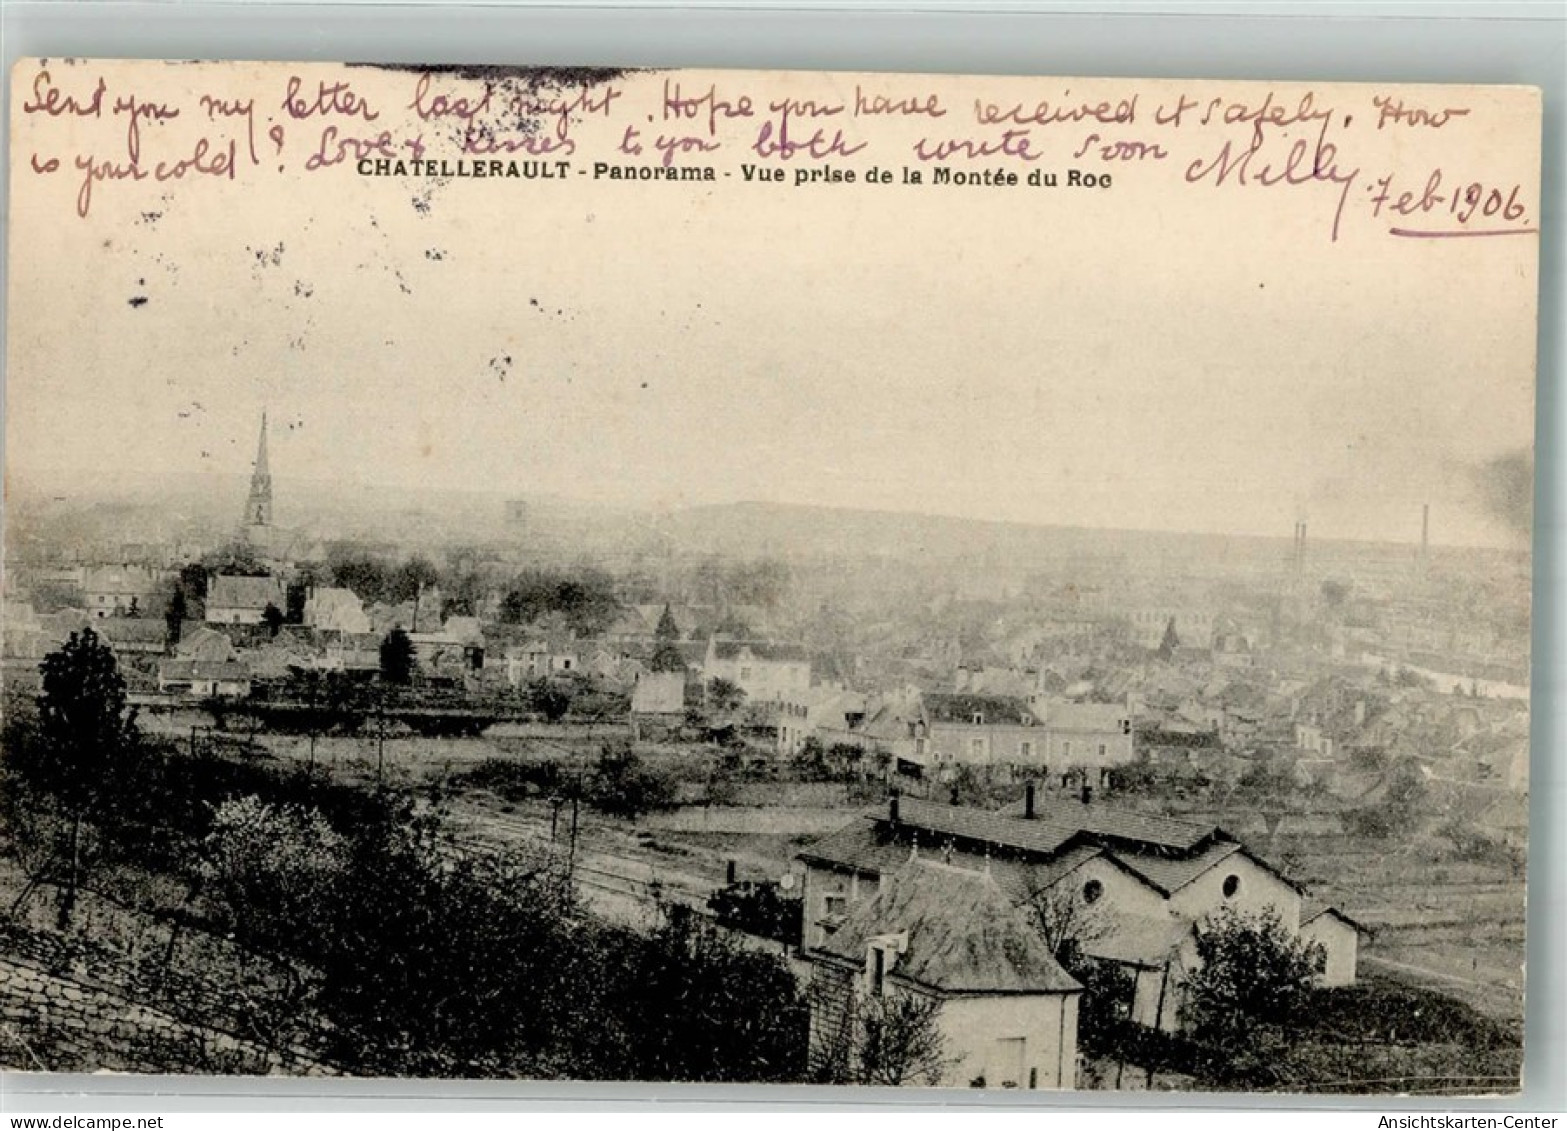 Sent you my letter last night. Hope you have received it safely. How
is your cold? Love & kisses to you both write soon Milly Feb 1906.
CHATELLERAULT - Panorama - Vue prise de la Montée du Roc
delcampe.net
Ansichtskarten-Center